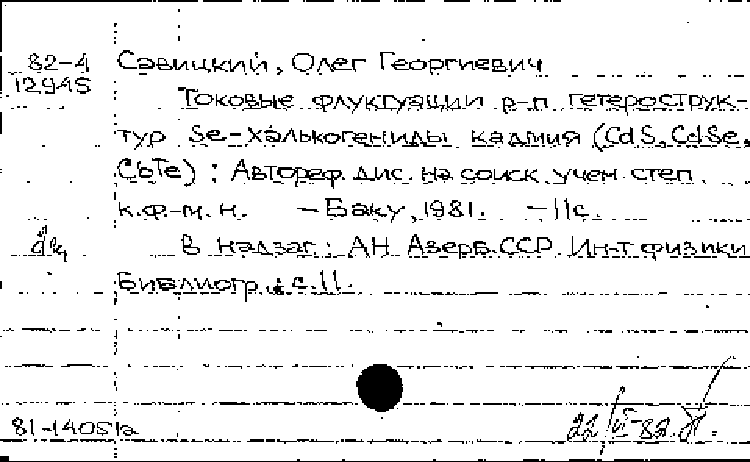 82-4
12945
Савицкий, Олег Георгиевич
Токовые флуктуации р-п гетерострук-
тур Se-халькогениды кадмия (CdS, CdSe,
CbTe) : Автореф. дис. на соиск. учен. степ.
к.ф.-м.н. - Баку, 1981. - 11с.
В надзаг.: АН Азерб.ССР. Ин-т физики
Библиогр.: с.11.
81-14051а
22/VI-82.